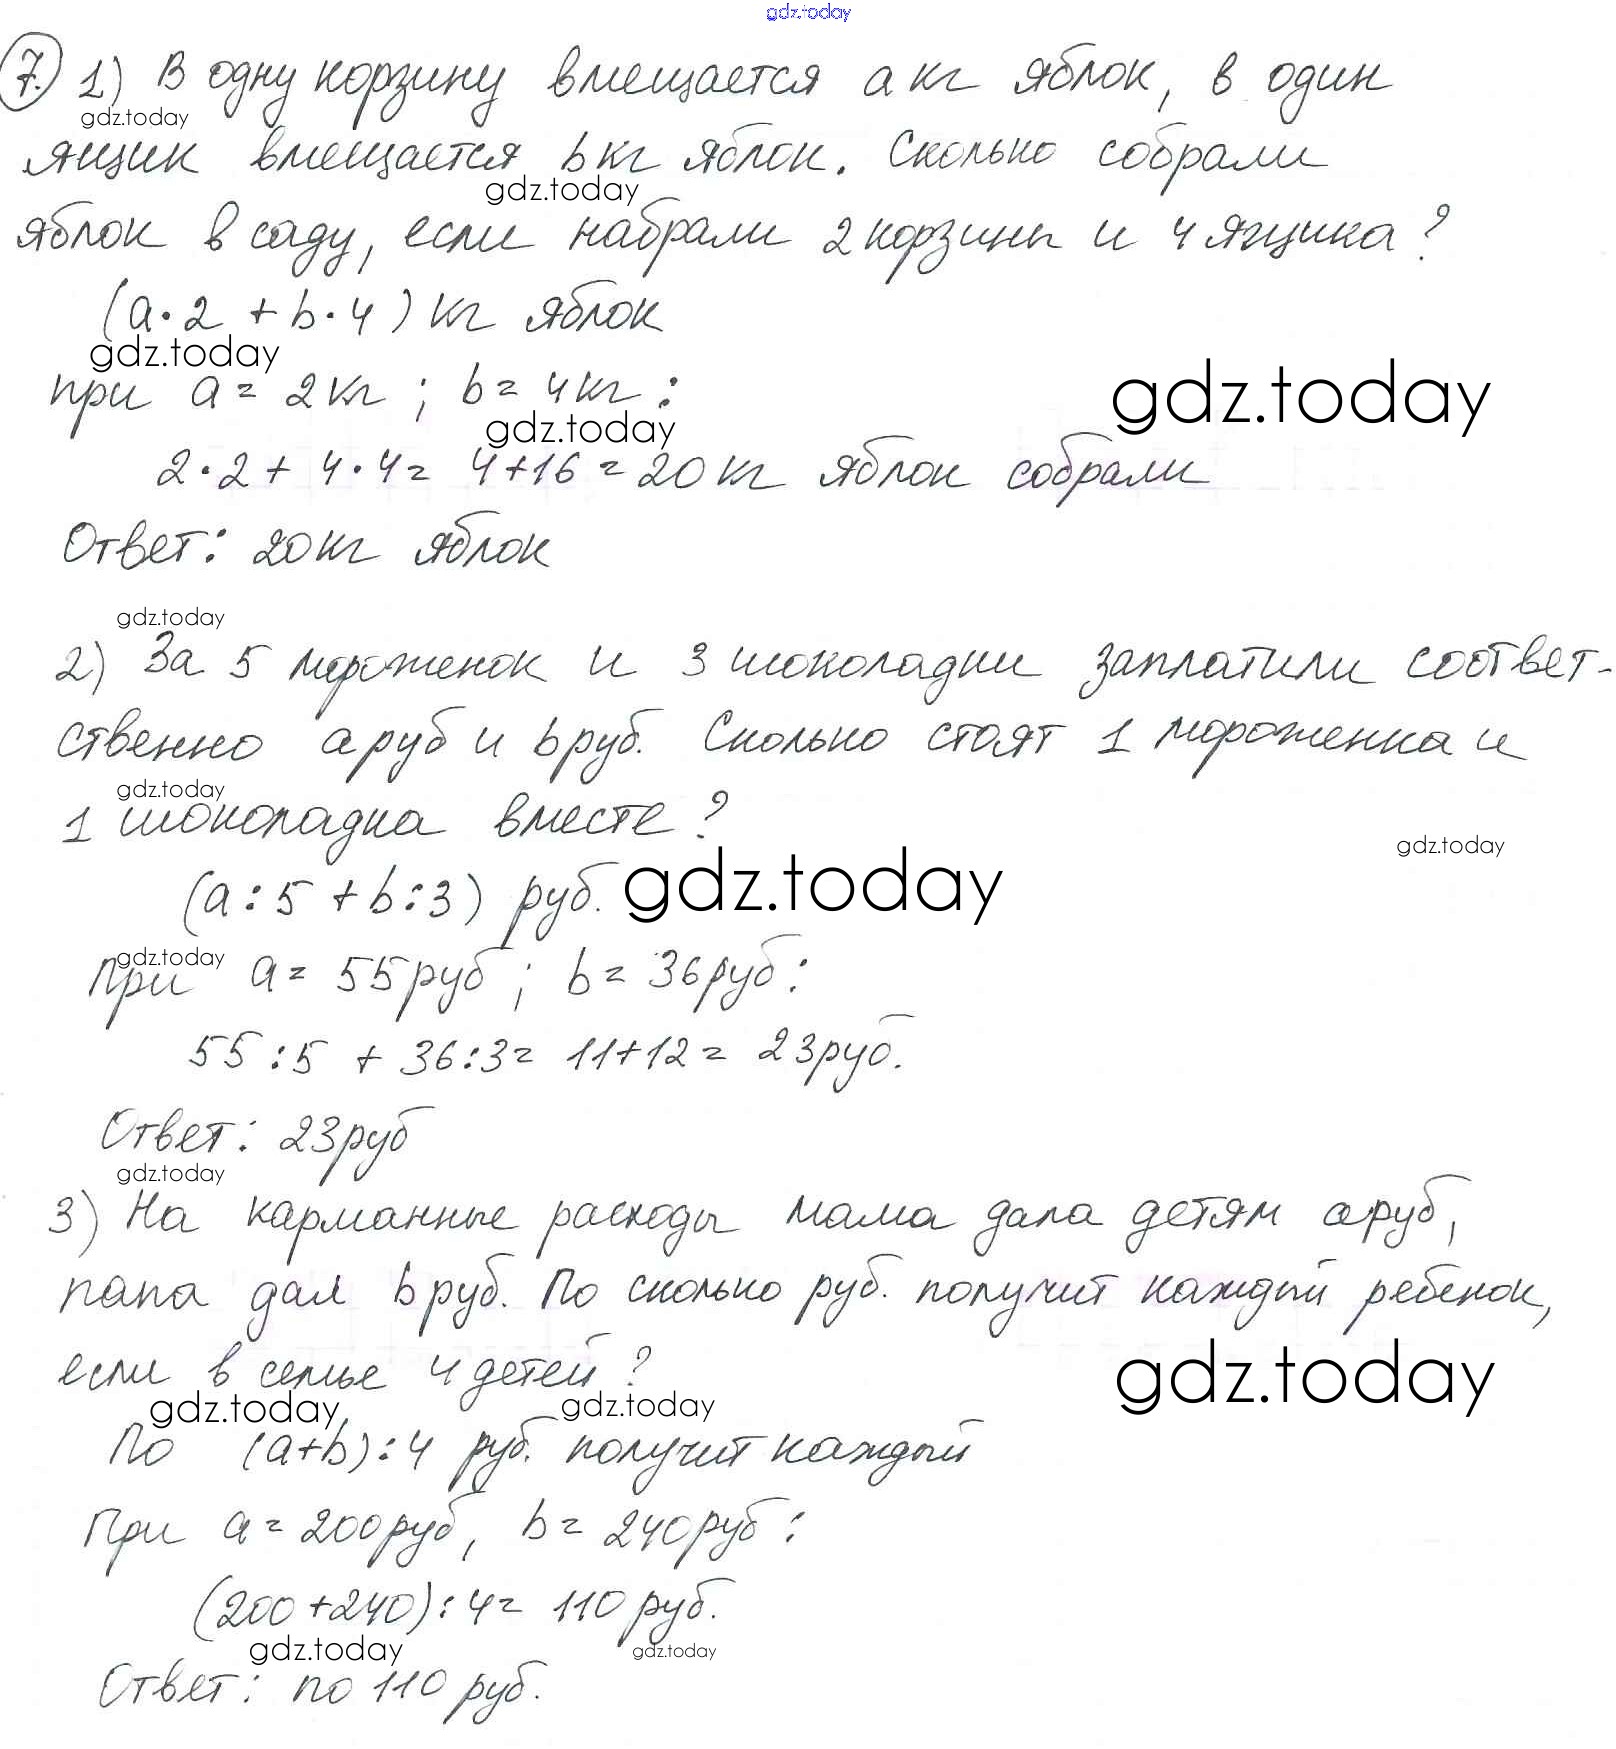 gdz.today
7. 1) В одну корзину вмещается a кг яблок, в один
gdz.today
ящик вмещается b кг яблок. Сколько собрали
gdz.today
яблок в саду, если набрали 2 корзины и 4 ящика?
(a·2 + b·4) кг яблок
gdz.today
gdz.today
при a = 2 кг ; b = 4 кг :
gdz.today
2·2 + 4·4 = 4+16 = 20 кг яблок собрали
Ответ: 20 кг яблок
gdz.today
2) За 5 мороженок и 3 шоколадки заплатили соответ-
ственно a руб и b руб. Сколько стоят 1 мороженка и
gdz.today
1 шоколадка вместе?
gdz.today
(a:5 + b:3) руб.
gdz.today
gdz.today
При a = 55 руб ; b = 36 руб :
55:5 + 36:3 = 11+12 = 23 руб.
Ответ: 23 руб
gdz.today
3) На карманные расходы мама дала детям a руб,
папа дал b руб. По сколько руб. получит каждый ребенок,
если в семье 4 детей?
gdz.today
gdz.today
gdz.today
По (a+b):4 руб. получит каждый
При a = 200 руб, b = 240 руб :
(200+240):4 = 110 руб.
gdz.today
gdz.today
Ответ: по 110 руб.